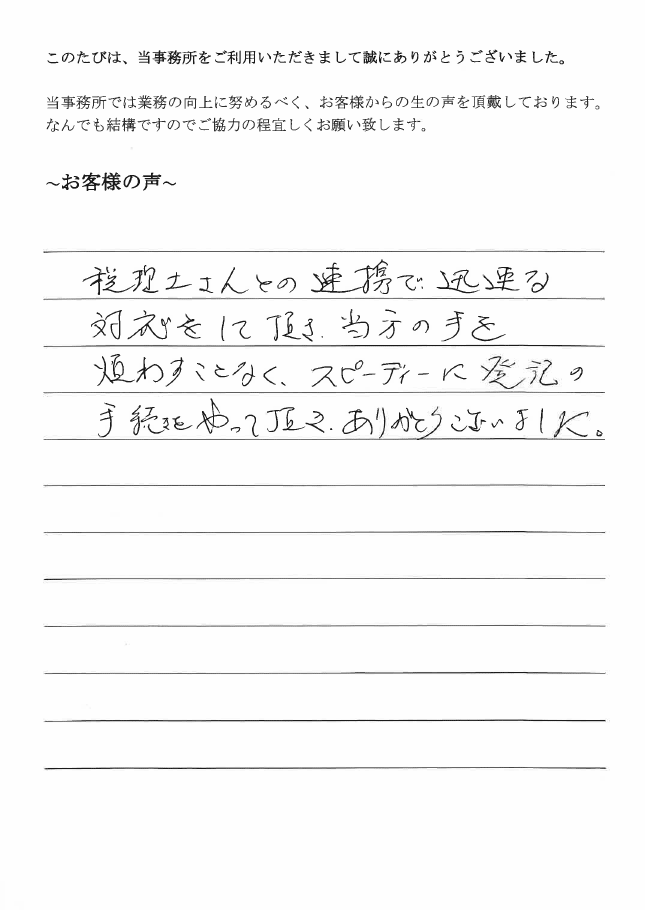 このたびは、当事務所をご利用いただきまして誠にありがとうございました。
当事務所では業務の向上に努めるべく、お客様からの生の声を頂戴しております。
なんでも結構ですのでご協力の程宜しくお願い致します。
～お客様の声～
税理士さんとの連携で、迅速な
対応をして頂き、当方の手を
煩わすことなく、スピーディーに登記の
手続きをやって頂き、ありがとうございました。